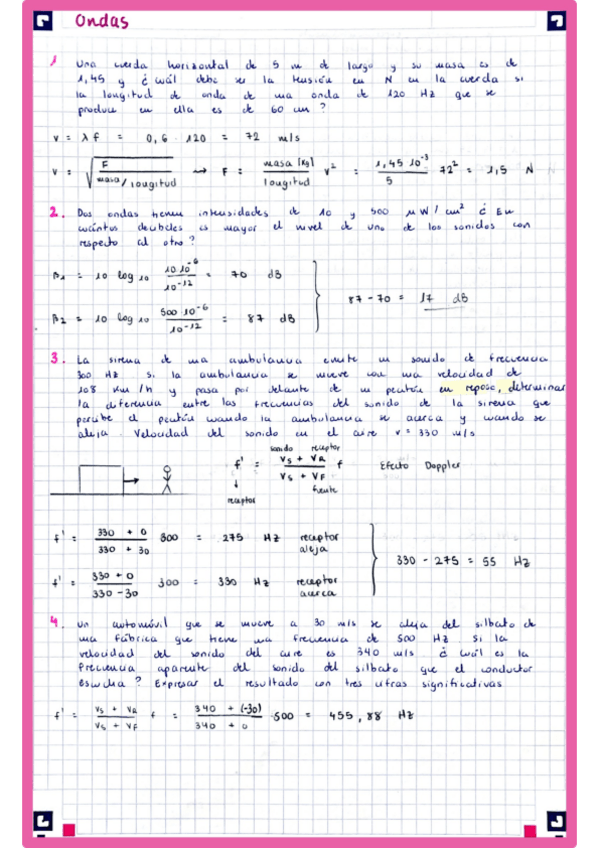 Ondas
1 Una cuerda horizontal de 5 m de largo y su masa es de
1,45 g ¿ cuál debe ser la tensión en N en la cuerda si
la longitud de onda de una onda de 120 Hz que se
produce en ella es de 60 cm ?
v = λ f = 0,6 · 120 = 72 m/s
v = √(F / masa/longitud) → F = masa [kg] / longitud v² = 1,45 · 10⁻³ / 5 72² = 1,5 N
2. Dos ondas tienen intensidades de 10 y 500 μW/cm² ¿ En
cuántos decibeles es mayor el nivel de uno de los sonidos con
respecto al otro ?
β1 = 10 log 10 10·10⁻⁶ / 10⁻¹² = 70 dB
87 - 70 = 17 dB
β2 = 10 log 10 500·10⁻⁶ / 10⁻¹² = 87 dB
3. La sirena de una ambulancia emite un sonido de frecuencia
300 Hz si la ambulancia se mueve con una velocidad de
108 km/h y pasa por delante de un peatón en reposo, determinar
la diferencia entre las frecuencias del sonido de la sirena que
percibe el peatón cuando la ambulancia se acerca y cuando se
aleja. Velocidad del sonido en el aire v = 330 m/s
sonido receptor
f' = Vs + VR / Vs + VF f Efecto Doppler
receptor fuente
f' = 330 + 0 / 330 + 30 300 = 275 Hz receptor aleja
330 - 275 = 55 Hz
f' = 330 + 0 / 330 - 30 300 = 330 Hz receptor acerca
4. un automóvil que se mueve a 30 m/s se aleja del silbato de
una fábrica que tiene una frecuencia de 500 Hz. Si la
velocidad del sonido del aire es 340 m/s ¿ cuál es la
frecuencia aparente del sonido del silbato que el conductor
escucha ? Expresar el resultado con tres cifras significativas
f' = Vs + VR / Vs + VF f = 340 + (-30) / 340 + 0 · 500 = 455,88 Hz